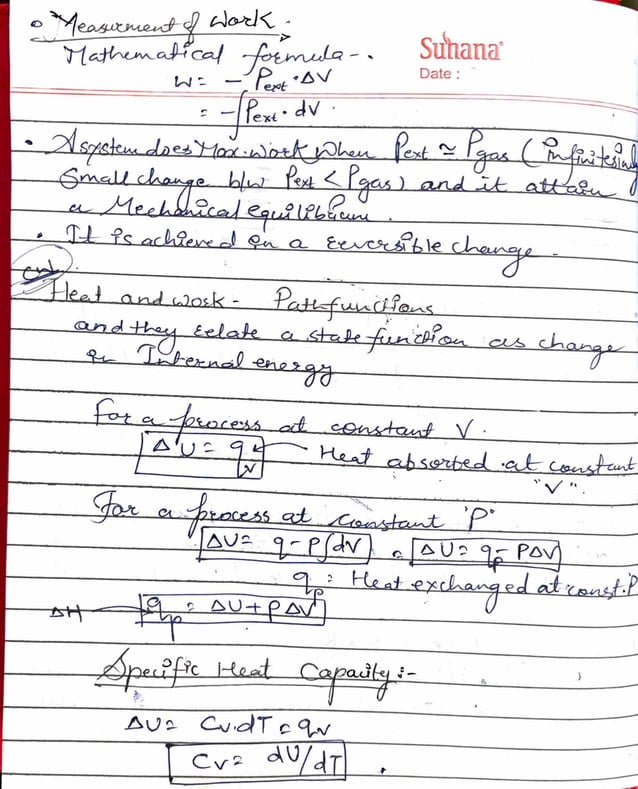 Measurment of Work.
Suhana
Mathematical formula-.
Date :
W = - Pext · ΔV
= -∫Pext · dV.
• A system does Max. work when Pext ≃ Pgas (infinitesimly
small change b/w Pext < Pgas) and it attain
a Mechanical equilibrium.
• It is achieved in a reversible change.
Heat and work - Path functions
and they relate a state function as change
in Internal energy
For a process at constant V.
ΔU = qv ← Heat absorbed at constant
"V".
For a process at constant 'P'
ΔU = q - P∫dV = ΔU = qp - PΔV
qp = Heat exchanged at const. P
ΔH → qp = ΔU + PΔV
Specific Heat Capacity :-
ΔU = Cv.dT = qv
Cv = dU/dT .